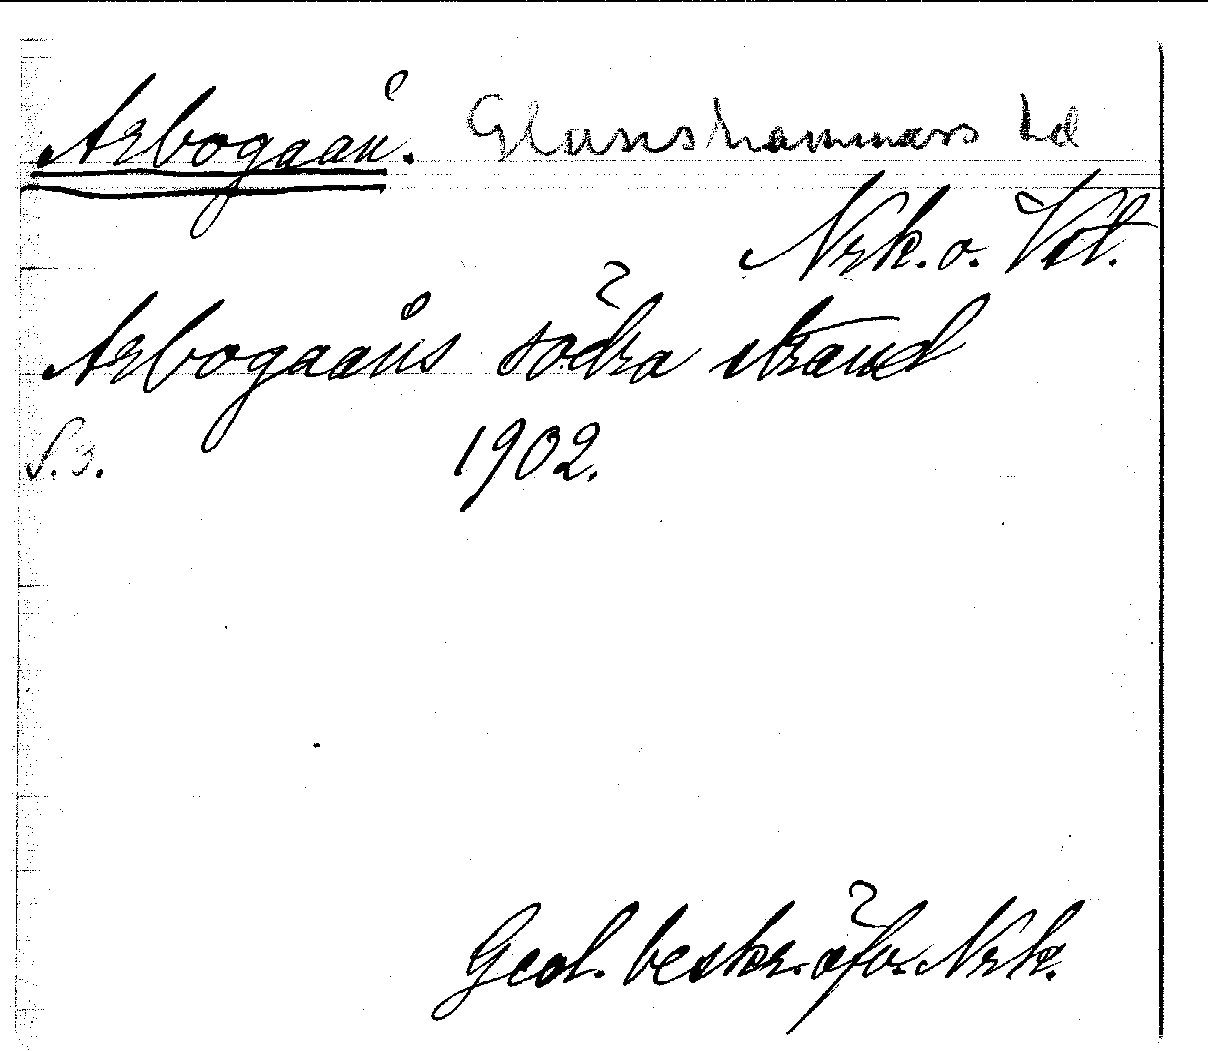 Arbogaån. Glanshammars hd
Nrk. o. Vstl.
Arbogaåns södra strand
S. 3. 1902.
Geol. beskr. öfv. Nrk.